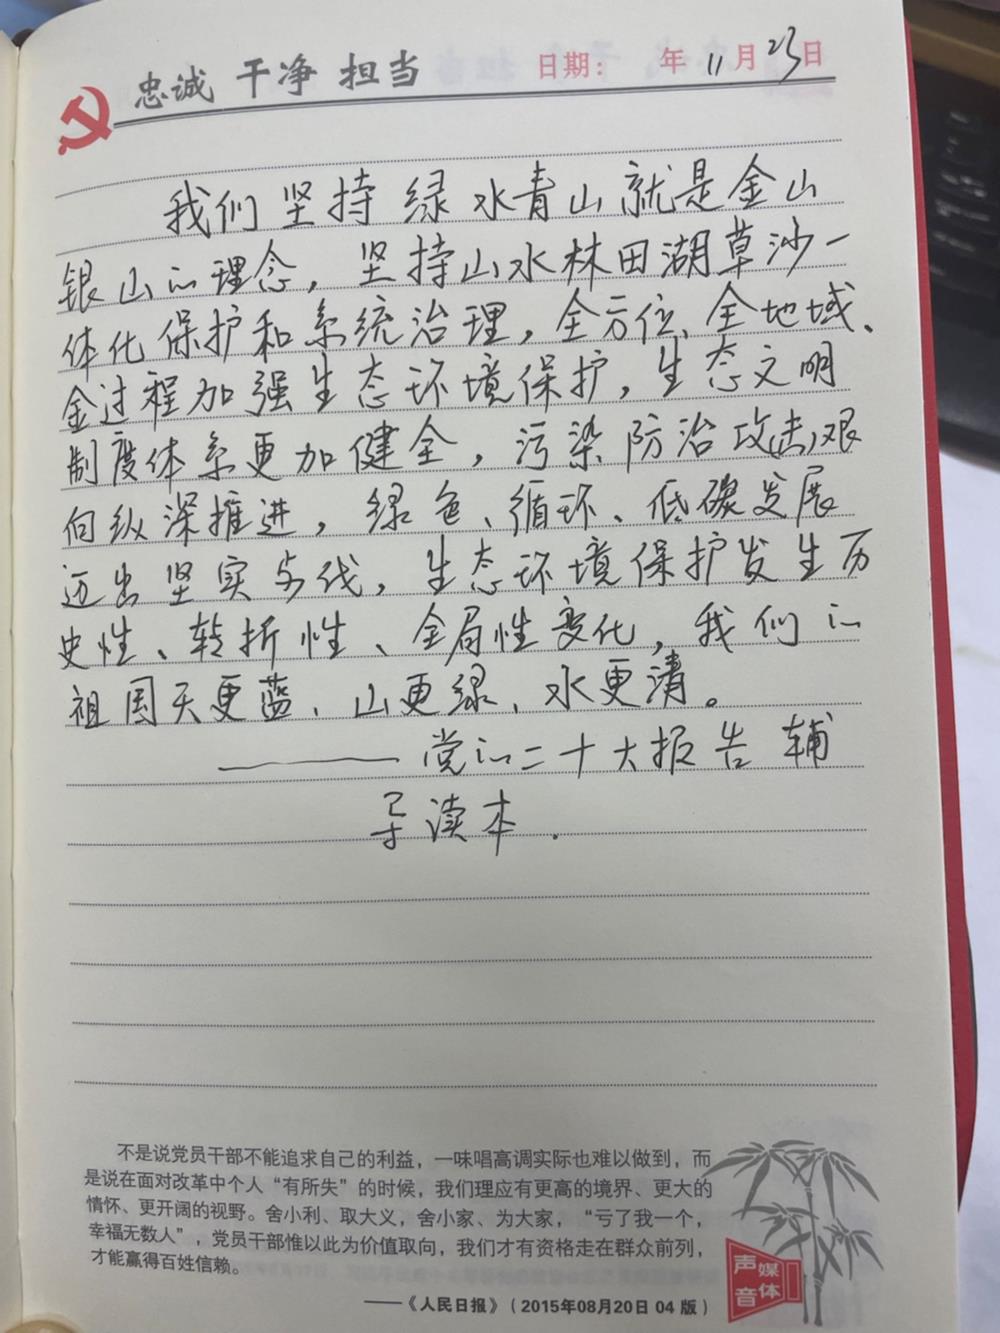 忠诚 干净 担当 日期： 年 11 月 23 日
我们坚持绿水青山就是金山
银山的理念，坚持山水林田湖草沙一
体化保护和系统治理，全方位、全地域、
全过程加强生态环境保护，生态文明
制度体系更加健全，污染防治攻击艰
向纵深推进，绿色、循环、低碳发展
迈出坚实步伐，生态环境保护发生历
史性、转折性、全局性变化，我们的
祖国天更蓝、山更绿、水更清。
——党的二十大报告辅
导读本.
不是说党员干部不能追求自己的利益，一味唱高调实际也难以做到，而
是说在面对改革中个人“有所失”的时候，我们理应有更高的境界、更大的
情怀、更开阔的视野。舍小利、取大义，舍小家、为大家，“亏了我一个，
幸福无数人”，党员干部惟以此为价值取向，我们才有资格走在群众前列，
才能赢得百姓信赖。
——《人民日报》（2015年08月20日 04 版）
媒体
声音